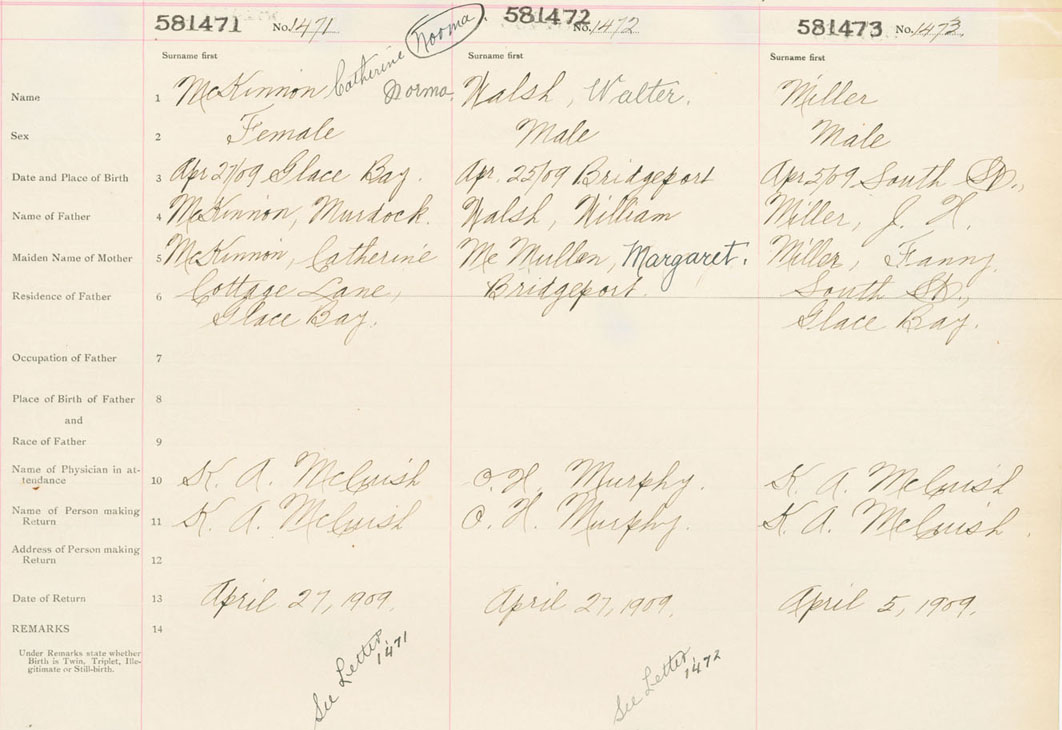 581471 No. 1471 Norma 581472 No. 1472 581473 No. 1473
Surname first Surname first Surname first
Name 1 McKinnon Catherine Norma. Walsh, Walter. Miller
Sex 2 Female Male Male
Date and Place of Birth 3 Apr 27/09 Glace Bay. Apr. 25/09 Bridgeport Apr 5/09 South St.,
Name of Father 4 McKinnon, Murdock. Walsh, William Miller, J. H.
Maiden Name of Mother 5 McKinnon, Catherine Mc Mullen, Margaret. Miller, Fanny.
Residence of Father 6 Cottage Lane, Bridgeport. South St.,
Glace Bay. Glace Bay.
Occupation of Father 7
Place of Birth of Father 8
and
Race of Father 9
Name of Physician in at-
tendance 10 K. A. McCuish O. H. Murphy. K. A. McCuish
Name of Person making
Return 11 K. A. McCuish O. H. Murphy. K. A. McCuish.
Address of Person making
Return 12
Date of Return 13 April 27, 1909. April 27, 1909. April 5, 1909.
REMARKS 14
Under Remarks state whether
Birth is Twin, Triplet, Ille-
gitimate or Still-birth.
See Letter 1471 See Letter 1472